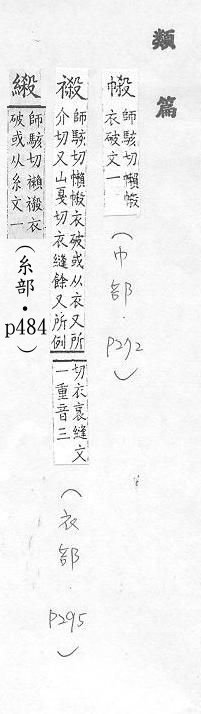 類篇
師駭切
衣破文一
(巾部.P272)
師駭切 衣破或从衣又所
介切又山戛切衣縫餘又所例
切衣裒縫文
一重音三
(衣部.P295)
師駭切 衣
破或从糸文一
(糸部・p484)